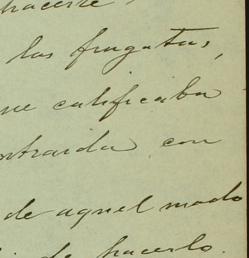 hacerse
las fragatas,
que calificaba
ontraida con
de aquel modo
de hacerlo.